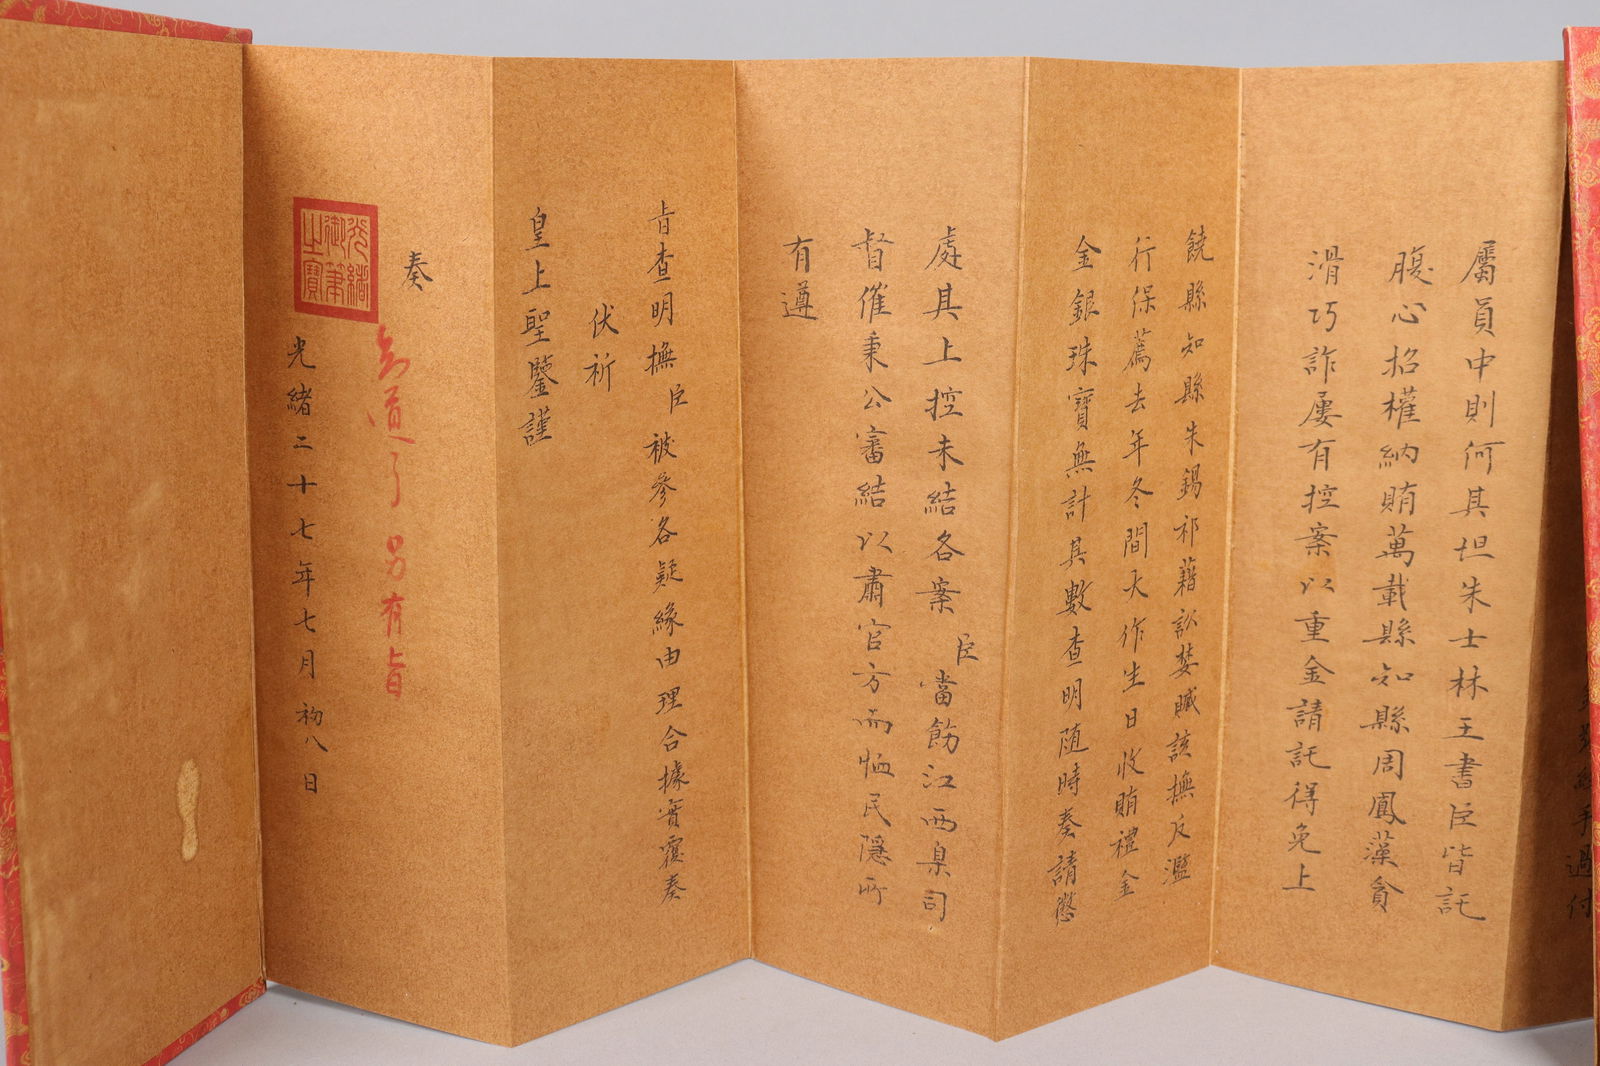 過付
屬員中則何其坦朱士林王書臣皆託
腹心招權納賄萬載縣知縣周鳳藻貪
滑巧詐屢有控案以重金請託得免上
饒縣知縣朱錫祁藉訟婪贓該撫反濫
行保薦去年冬間大作生日收賄禮金
金銀珠寶無計其數查明隨時奏請懲
處其上控未結各案臣當飭江西臬司
督催秉公審結以肅官方而恤民隱所
有遵
旨查明撫臣被參各疑緣由理合據實覆奏
伏祈
皇上聖鑒謹
奏
知道了另有旨
光緒御筆之寶
光緒二十七年七月初八日